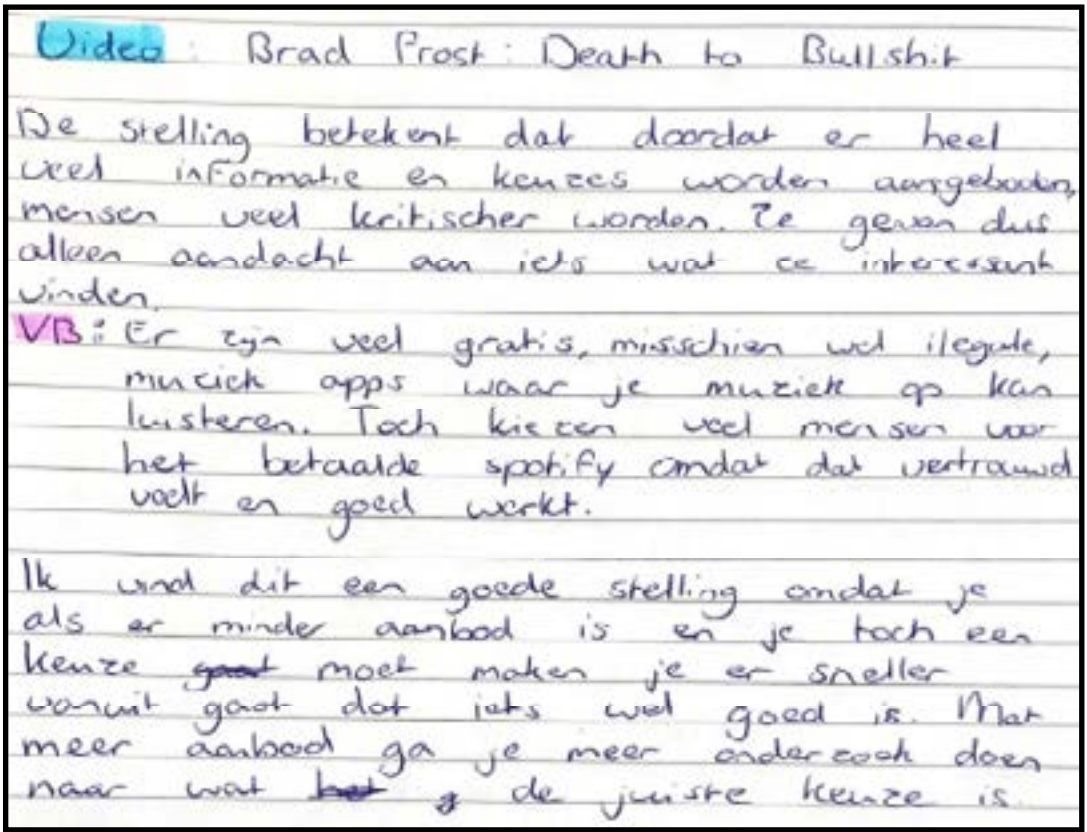 Video : Brad Frost : Death to Bullshit
De stelling betekent dat doordat er heel
veel informatie en keuzes worden aangeboden,
mensen veel kritischer worden. Ze geven dus
alleen aandacht aan iets wat ze interessant
vinden.
VB: Er zijn veel gratis, misschien wel ilegale,
muziek apps waar je muziek op kan
luisteren. Toch kiezen veel mensen voor
het betaalde spotify omdat dat vertrouwd
voelt en goed werkt.
Ik vind dit een goede stelling omdat je
als er minder aanbod is en je toch een
keuze gaat moet maken je er sneller
vanuit gaat dat iets wel goed is. Met
meer aanbod ga je meer onderzoek doen
naar wat het de juiste keuze is